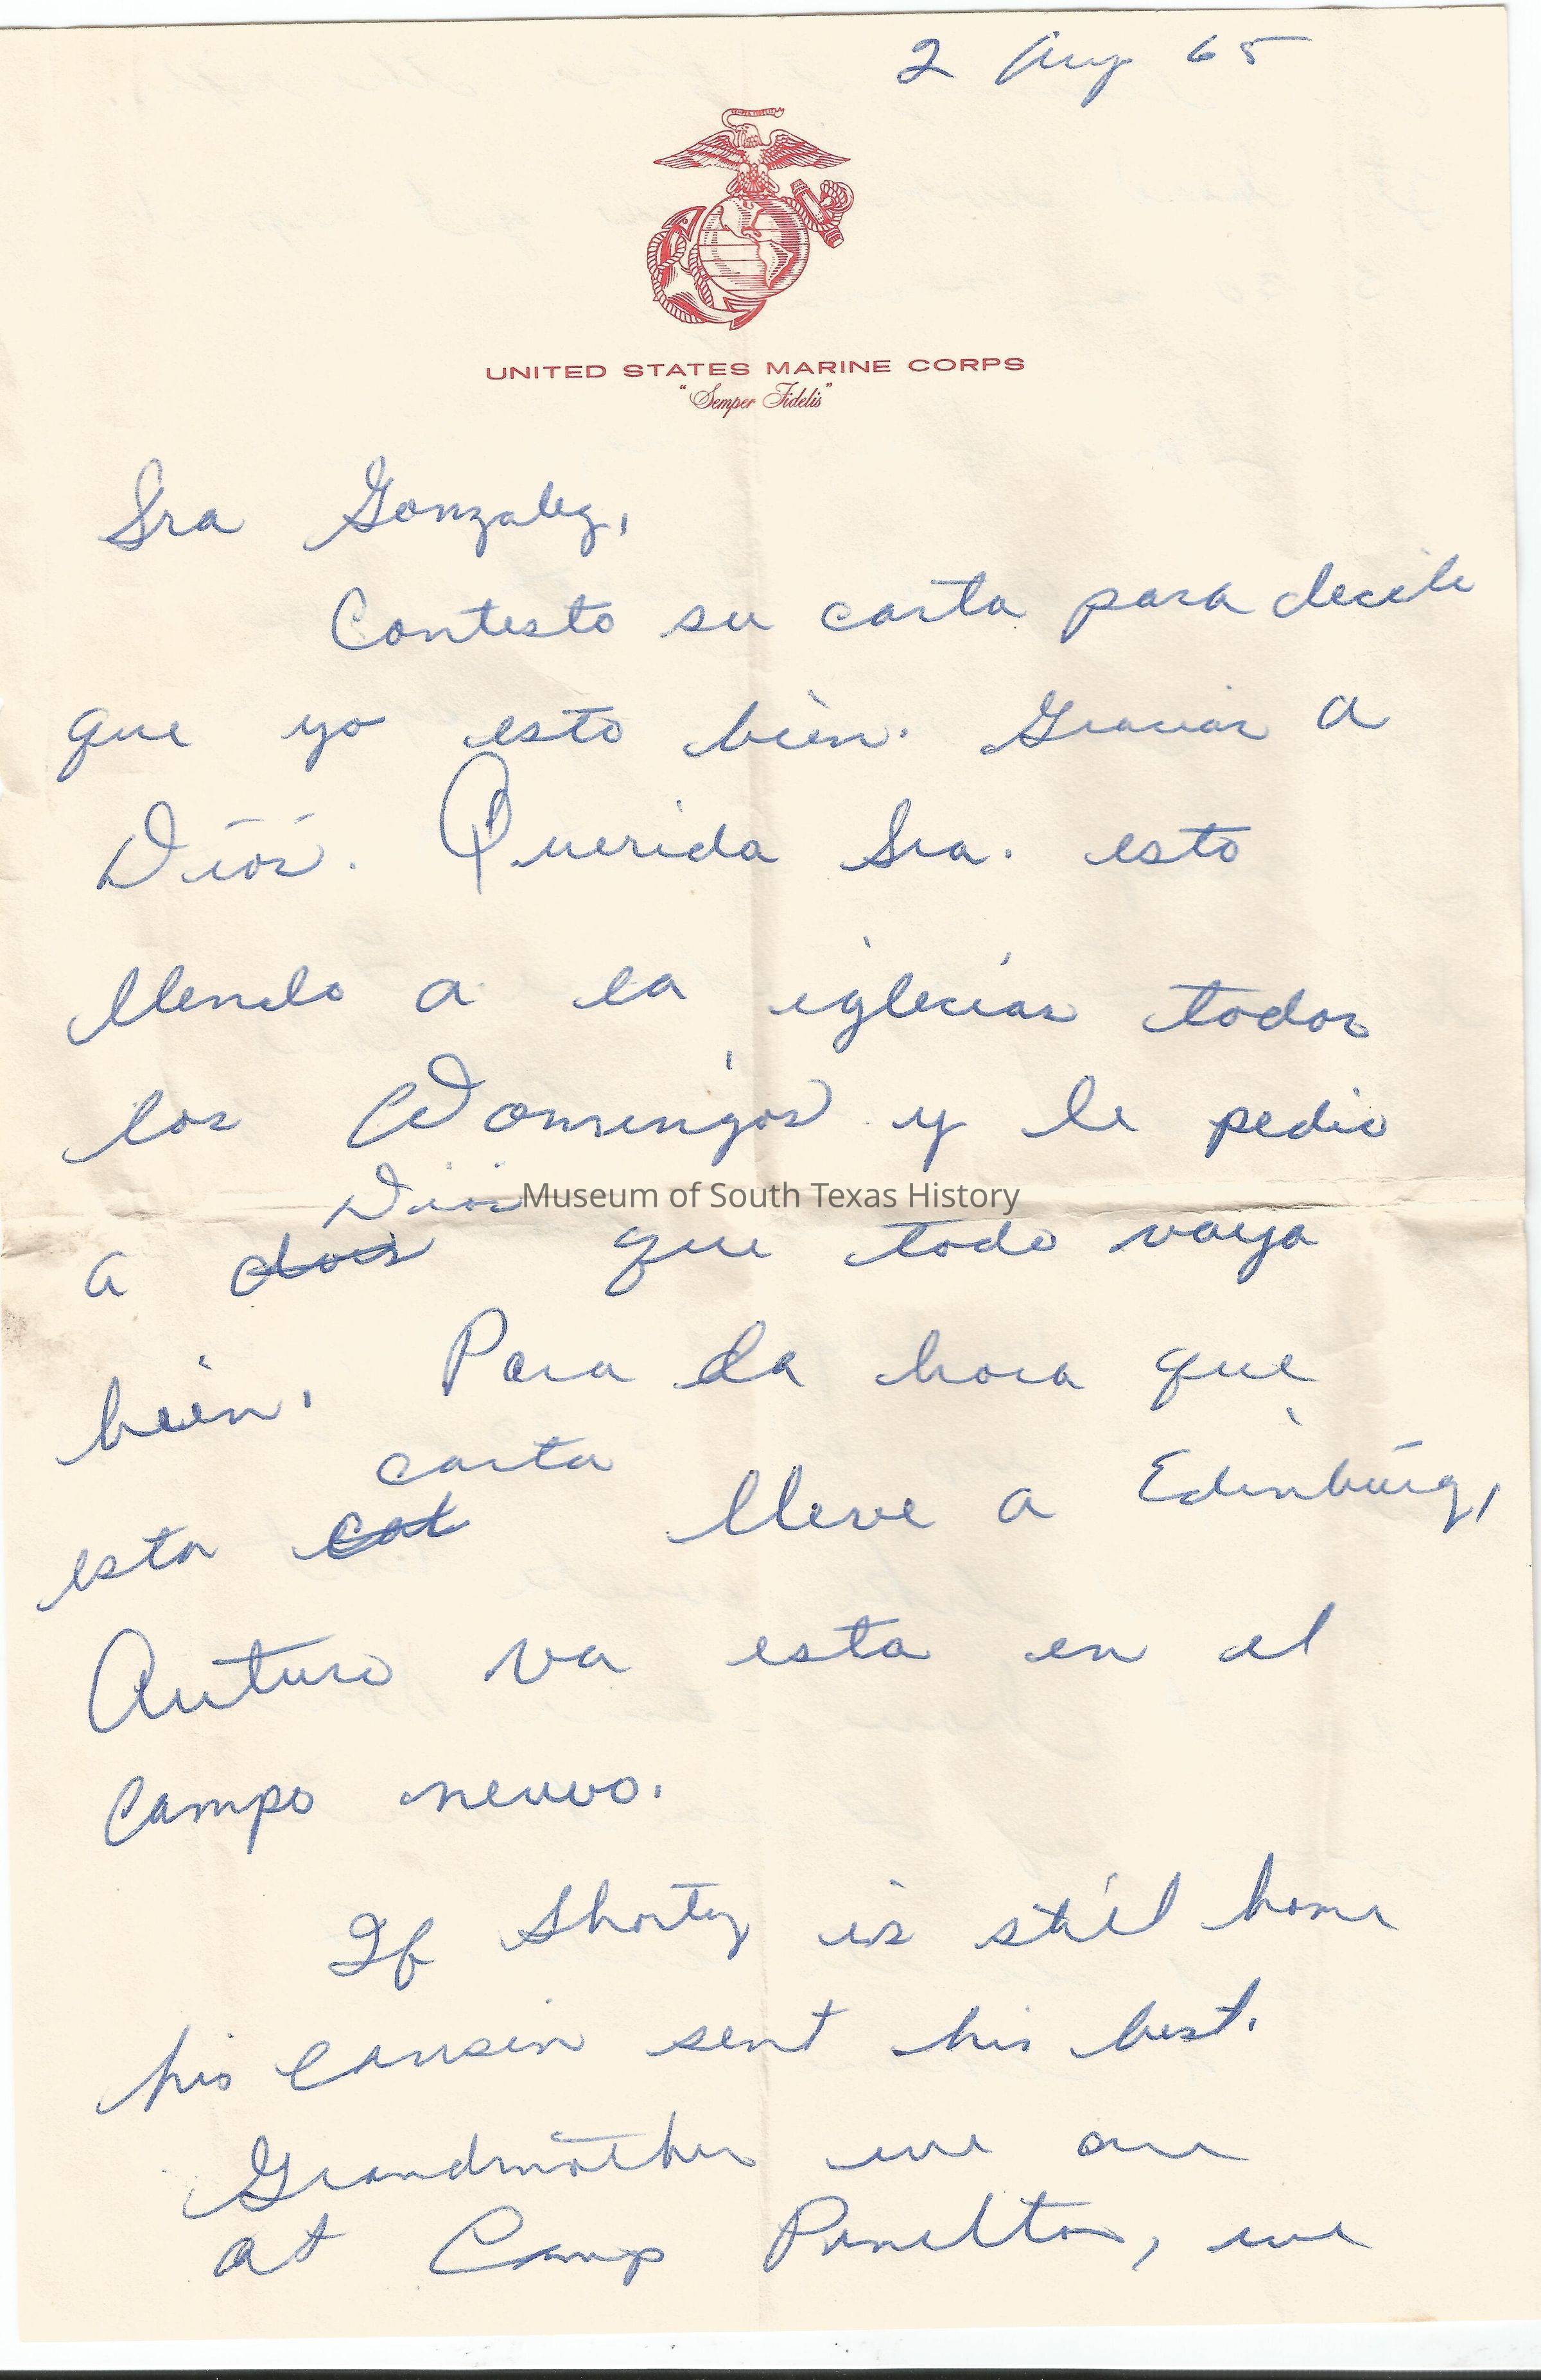 2 Aug 65
UNITED STATES MARINE CORPS
"Semper Fidelis"
Sra Gonzalez,
Contesto su carta para decile
que yo esto bien. Gracias a
Dios. Querida Sra. esto
llendo a la iglecias todos
los Domingos y le pedio
Dios
a dois que todo vaya
bien. Para la hora que
carta
esta cat lleve a Edinburg,
Auturo va esta en el
Campo neuvo.
If Shorty is still home
his cousin sent his best.
Grandmother we are
at Camp Penelton, we
Museum of South Texas History